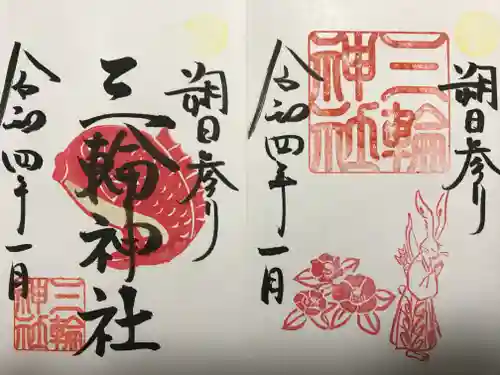 朔日参り
三輪神社
令和四年十一月
三輪神社
朔日参り
三輪神社
令和四年十一月